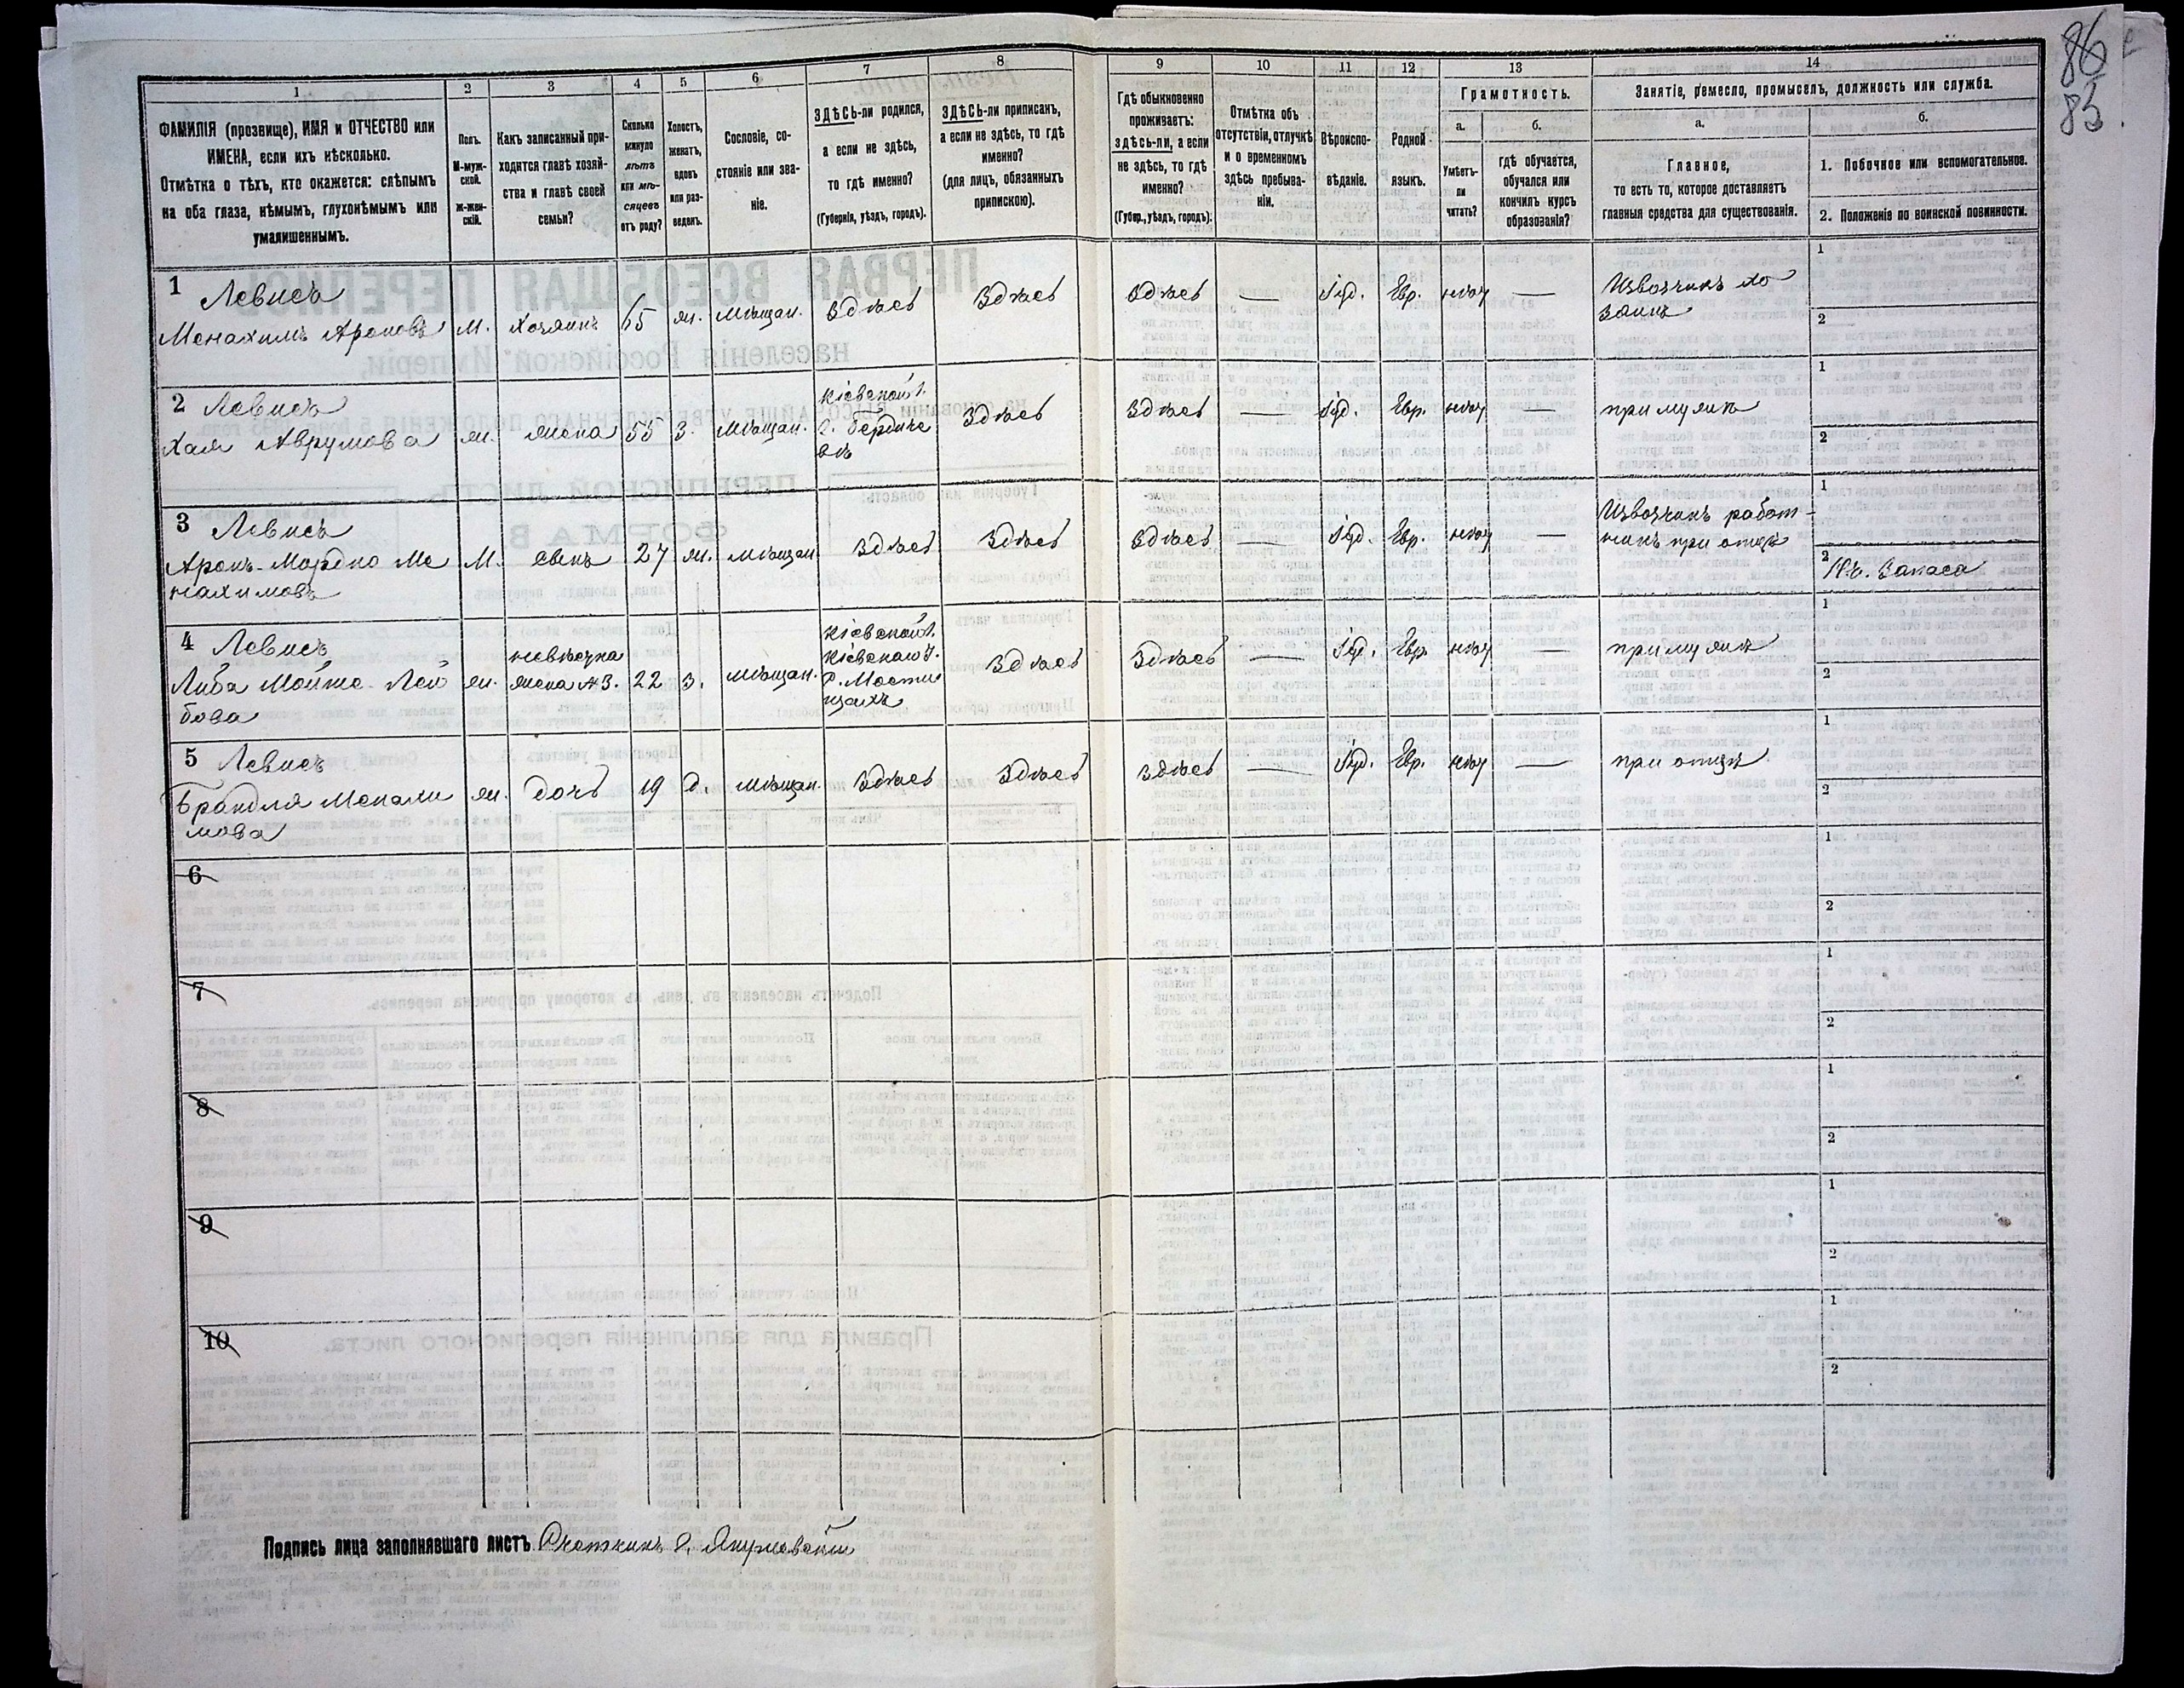 86
85.
1 2 3 4 5 6 7 8 9 10 11 12 13 14
ФАМИЛІЯ (прозвище), ИМЯ и ОТЧЕСТВО или
ИМЕНА, если ихъ нѣсколько.
Отмѣтка о тѣхъ, кто окажется: слѣпымъ
на оба глаза, нѣмымъ, глухонѣмымъ или
умалишеннымъ.
Полъ.
М-муж-
ской.
ж-жен-
скій.
Какъ записанный при-
ходится главѣ хозяй-
ства и главѣ своей
семьи?
Сколько
минуло
лѣтъ
или мѣ-
сяцевъ
отъ роду?
Холостъ,
женатъ,
вдовъ
или раз-
веденъ.
Сословіе, со-
стояніе или зва-
ніе.
ЗДѢСЬ-ли родился,
а если не здѣсь,
то гдѣ именно?
(Губернія, уѣздъ, городъ).
ЗДѢСЬ-ли приписанъ,
а если не здѣсь, то гдѣ
именно?
(для лицъ, обязанныхъ
припискою).
Гдѣ обыкновенно
проживаетъ:
здѣсь-ли, а если
не здѣсь, то гдѣ
именно?
(Губер., уѣздъ, городъ).
Отмѣтка объ
отсутствіи, отлучкѣ
и о временномъ
здѣсь пребыва-
ніи.
Вѣроиспо-
вѣданіе.
Родной
языкъ.
Грамотность.
а.
Умѣетъ-
ли
читать?
б.
гдѣ обучается,
обучался или
кончилъ курсъ
образованія?
Занятіе, ремесло, промыселъ, должность или служба.
а.
Главное,
то есть то, которое доставляетъ
главныя средства для существованія.
б.
1. Побочное или вспомогательное.
2. Положеніе по воинской повинности.
1 Левисъ
Менахимъ Ароновъ м. хозяинъ 65 ж. мѣщан. здѣсь здѣсь здѣсь — Іуд. Евр. нѣт — Извозчикъ хо
заинъ
1
2
2 Левисъ
Хая Аврумова ж. жена 55 з. мѣщан. Кіевской г.
г. Бердиче
въ здѣсь здѣсь — Іуд. Евр. нѣт — при мужѣ
1
2
3 Левисъ
Аронъ-Мордко Ме
нахимовъ М. сынъ 27 ж. мѣщан здѣсь здѣсь здѣсь — Іуд. Евр. нѣт — Извозчикъ работ-
никъ при отцѣ
1
2 Н.ч. запаса
4 Левисъ
Либа Мойше-Лей
бова ж. невѣстка
жена №3. 22 з. мѣщан. Кіевской г.
Кіевскаго у.
Мости
щахъ здѣсь здѣсь — Іуд. Евр. нѣт — при мужѣ
1
2
5 Левисъ
Брандля Менахи
мова ж. дочь 19 д. мѣщан. здѣсь здѣсь здѣсь — Іуд. Евр. нѣт — при отцѣ
1
2
6
1
2
7
1
2
8
1
2
9
1
2
10
1
2
Подпись лица заполнявшаго листъ Счетчикъ